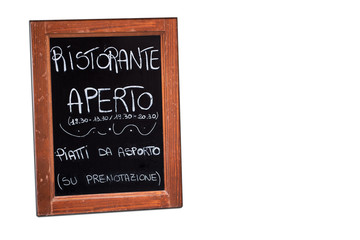 RISTORANTE
APERTO
(12.30-15.30/19.30-20.30)
PIATTI DA ASPORTO
(SU PRENOTAZIONE)